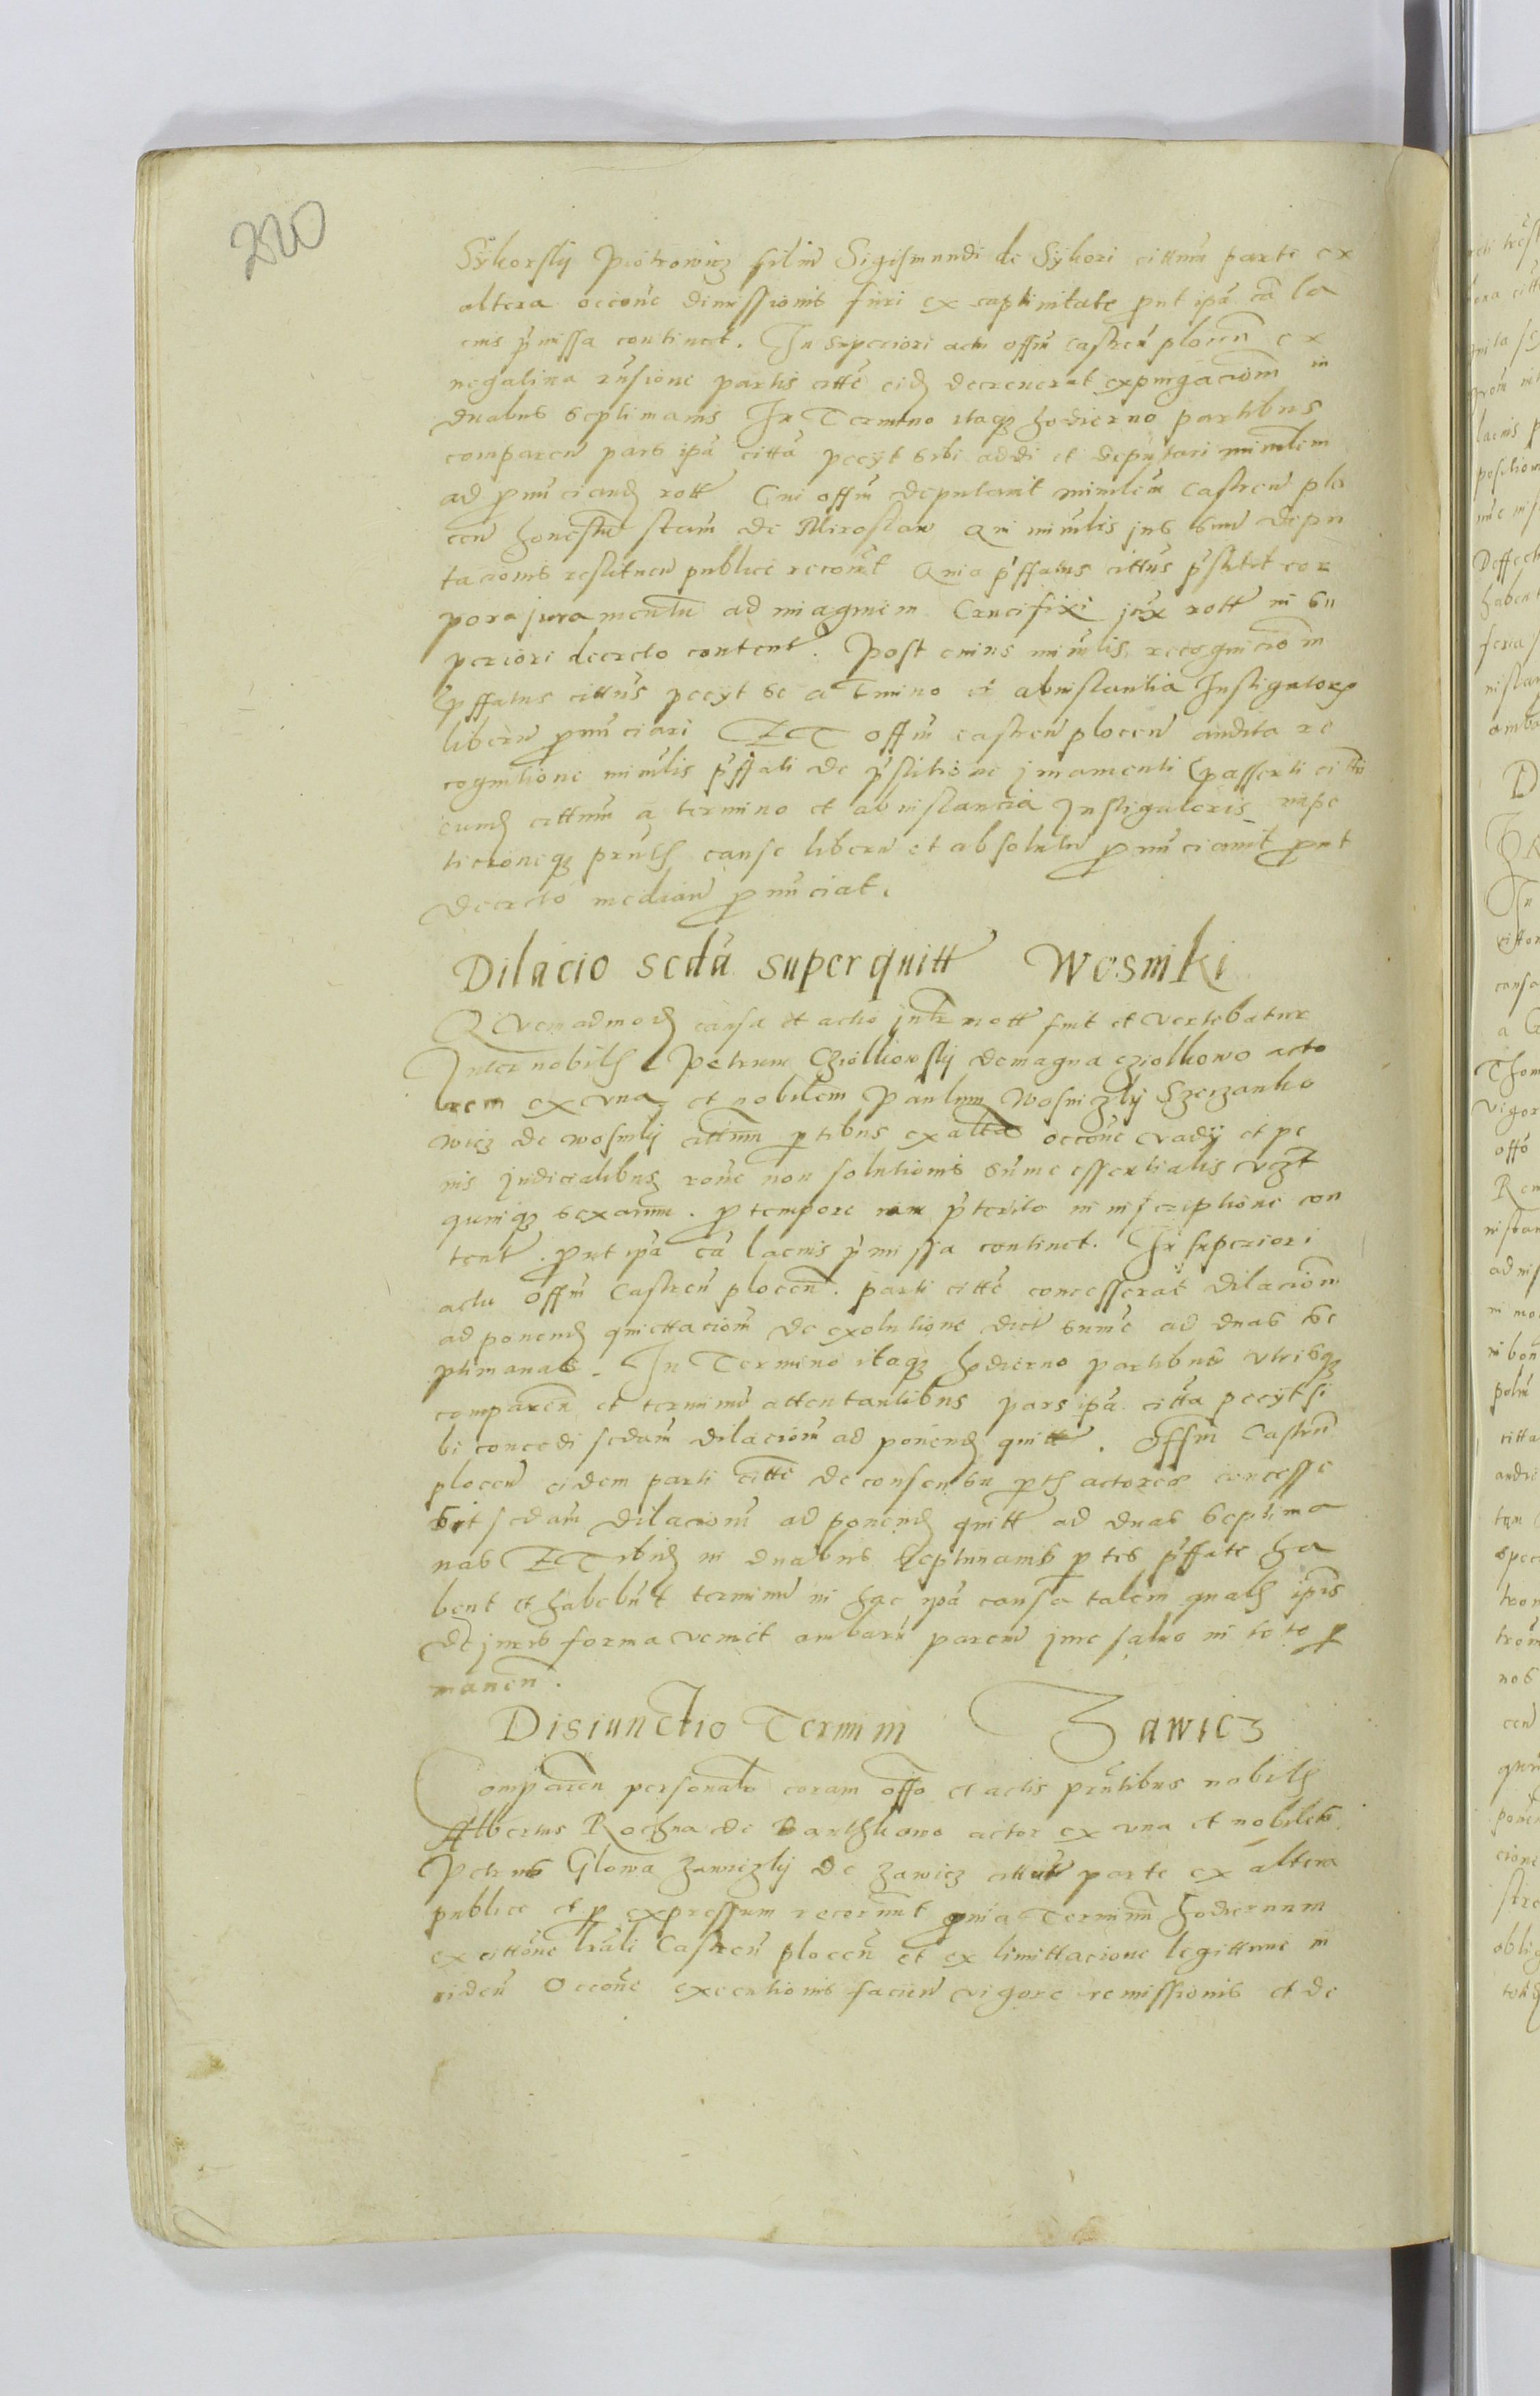 220
Sÿkorsky Piotrowicz filiu Sigismundi de Sÿkori cittum parte ex
altera occone dimissionis furi ex captivitate put ipa ca la
cius pmissa continet. In superiori actu offm castren plocen ex
negativa rnsione partis citte eid decreverat expurgaciom in
duabus septimanis In Termino itaq hodierno partibus
comparen pars ipa citta pecyt sibi addi et deputari minlem
ad pnunciand rott Cui offm deputavit minlem castren plo
cen honestu stam de Miroslaw Qui minlis jus suu depu
tacionis restituen publice recovit Quia pffatus cittus pstitit cor
pora juramentu ad imaginem Crucifixi jux rott in su
periori decreto content. Post cuius minlis recogniciom
pffatus cittus pecyt se a tmino et ab instantia Instigatoris
liberu pnunciari ET offm castren plocen audita re
cognitione minlis pffati de pstitione juramenti p asserti citti
eund cittum a termino et ab instancia Instigatoris impe
ticioneq pntis cause liberu et absolutu pnunciavit put
decreto median pnunciat.
Dilacio scda super quitt Wosniki
Quemadmod causa et actio intr nott fuit et vertebatur
Inter nobiles Petrum Cziolkowsky de magna cziolkowo acto
rem ex una et nobilem Paulum Wosniczky Szczanko
wicz de wosniky cittum ptibus ex altera occone vadÿ et pe
nis judicialibus rone non solutionis sume essentialis vczt
quinq sexarum. p tempore iam pterito in inscriptione con
tent. put ipa ca lacius pmissa continet. In superiori
actu offm Castren plocen. parti citte concesserat dilaciom
ad ponend quittaciom de exolutione dict sume ad duas se
ptimanas. In Termino itaq hodierno partibus utrisq
comparen et terminu attentantibus pars ipa citta pecyt si
bi concedi scdam dilaciom ad ponend quitt. Offm Castren
plocen eidem parti citte de consensu ptis actoree concesse
sit scdam dilaciom ad ponend quitt ad duas septima
nas ET ibid in duabus septimanis ptes pffate ha
bent et habebut terminu in hac ipa causa talem qualis ipis
de juris forma veniet ambaru parciu jure salvo in toto p
manen.
Disiunctio Termini Zawicz
Comparen personalr coram offo et actis pntibus nobiles
Albertus Rochna de Barthkowo actor ex una et nobilis
Petrus Glowa Zawiczky de Zawicz cittus parte ex altera
publice et p expressum recovunt quia Terminum hodiernum
ex cittone lrali Castren plocen et ex limittacione legittime in
ciden occone executionis facien vigore remissionis et de